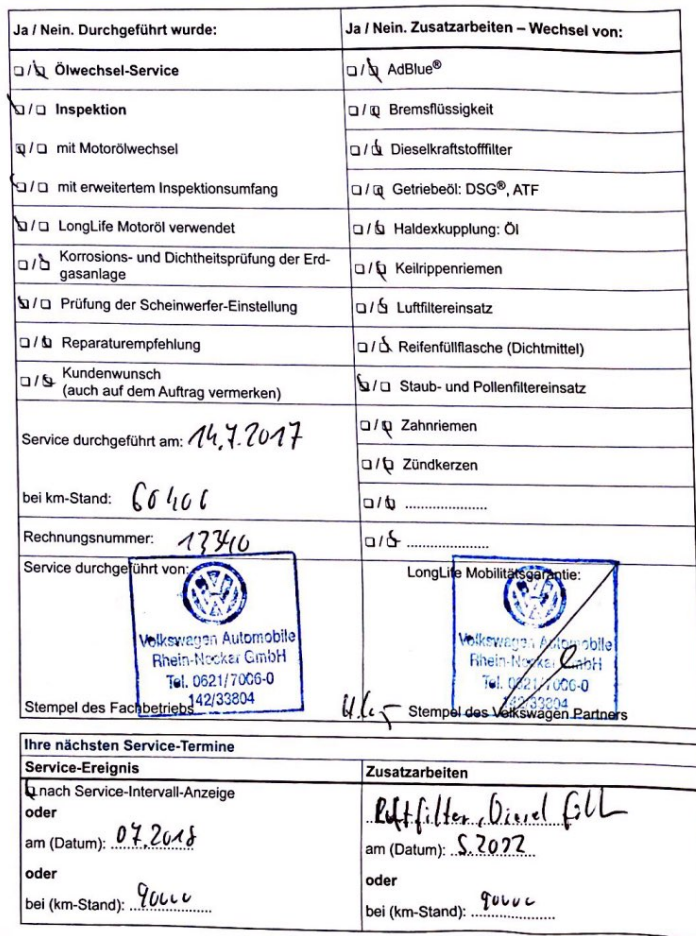 Ja / Nein. Durchgeführt wurde:
Ja / Nein. Zusatzarbeiten – Wechsel von:
/ Ölwechsel-Service
/ AdBlue®
/ Inspektion
/ Bremsflüssigkeit
/ mit Motorölwechsel
/ Dieselkraftstofffilter
/ mit erweitertem Inspektionsumfang
/ Getriebeöl: DSG®, ATF
/ LongLife Motoröl verwendet
/ Haldexkupplung: Öl
/ Korrosions- und Dichtheitsprüfung der Erd-
gasanlage
/ Keilrippenriemen
/ Prüfung der Scheinwerfer-Einstellung
/ Luftfiltereinsatz
/ Reparaturempfehlung
/ Reifenfüllflasche (Dichtmittel)
/ Kundenwunsch
(auch auf dem Auftrag vermerken)
/ Staub- und Pollenfiltereinsatz
Service durchgeführt am: 14.7.2017
/ Zahnriemen
/ Zündkerzen
bei km-Stand:
/ .....................
Rechnungsnummer: 13340
/ .....................
Service durchgeführt von:
Volkswagen Automobile
Rhein-Neckar GmbH
Tel. 0621/7006-0
142/33804
Stempel des Fachbetriebs
LongLife Mobilitätsgarantie:
Volkswagen Automobile
Rhein-Neckar GmbH
Tel. 0621/7006-0
142/33804
Stempel des Volkswagen Partners
Ihre nächsten Service-Termine
Service-Ereignis
nach Service-Intervall-Anzeige
oder
am (Datum): 07.2018
oder
bei (km-Stand): 90000
Zusatzarbeiten
Luftfilter, Diesel
am (Datum):
oder
bei (km-Stand): 90000